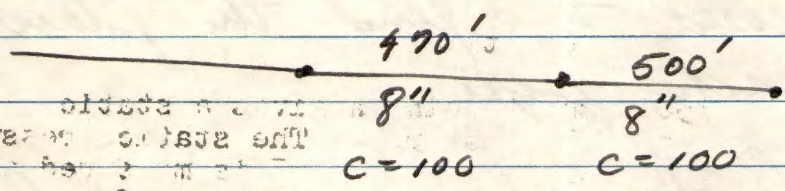 490' 500'
8" 8"
C=100 C=100